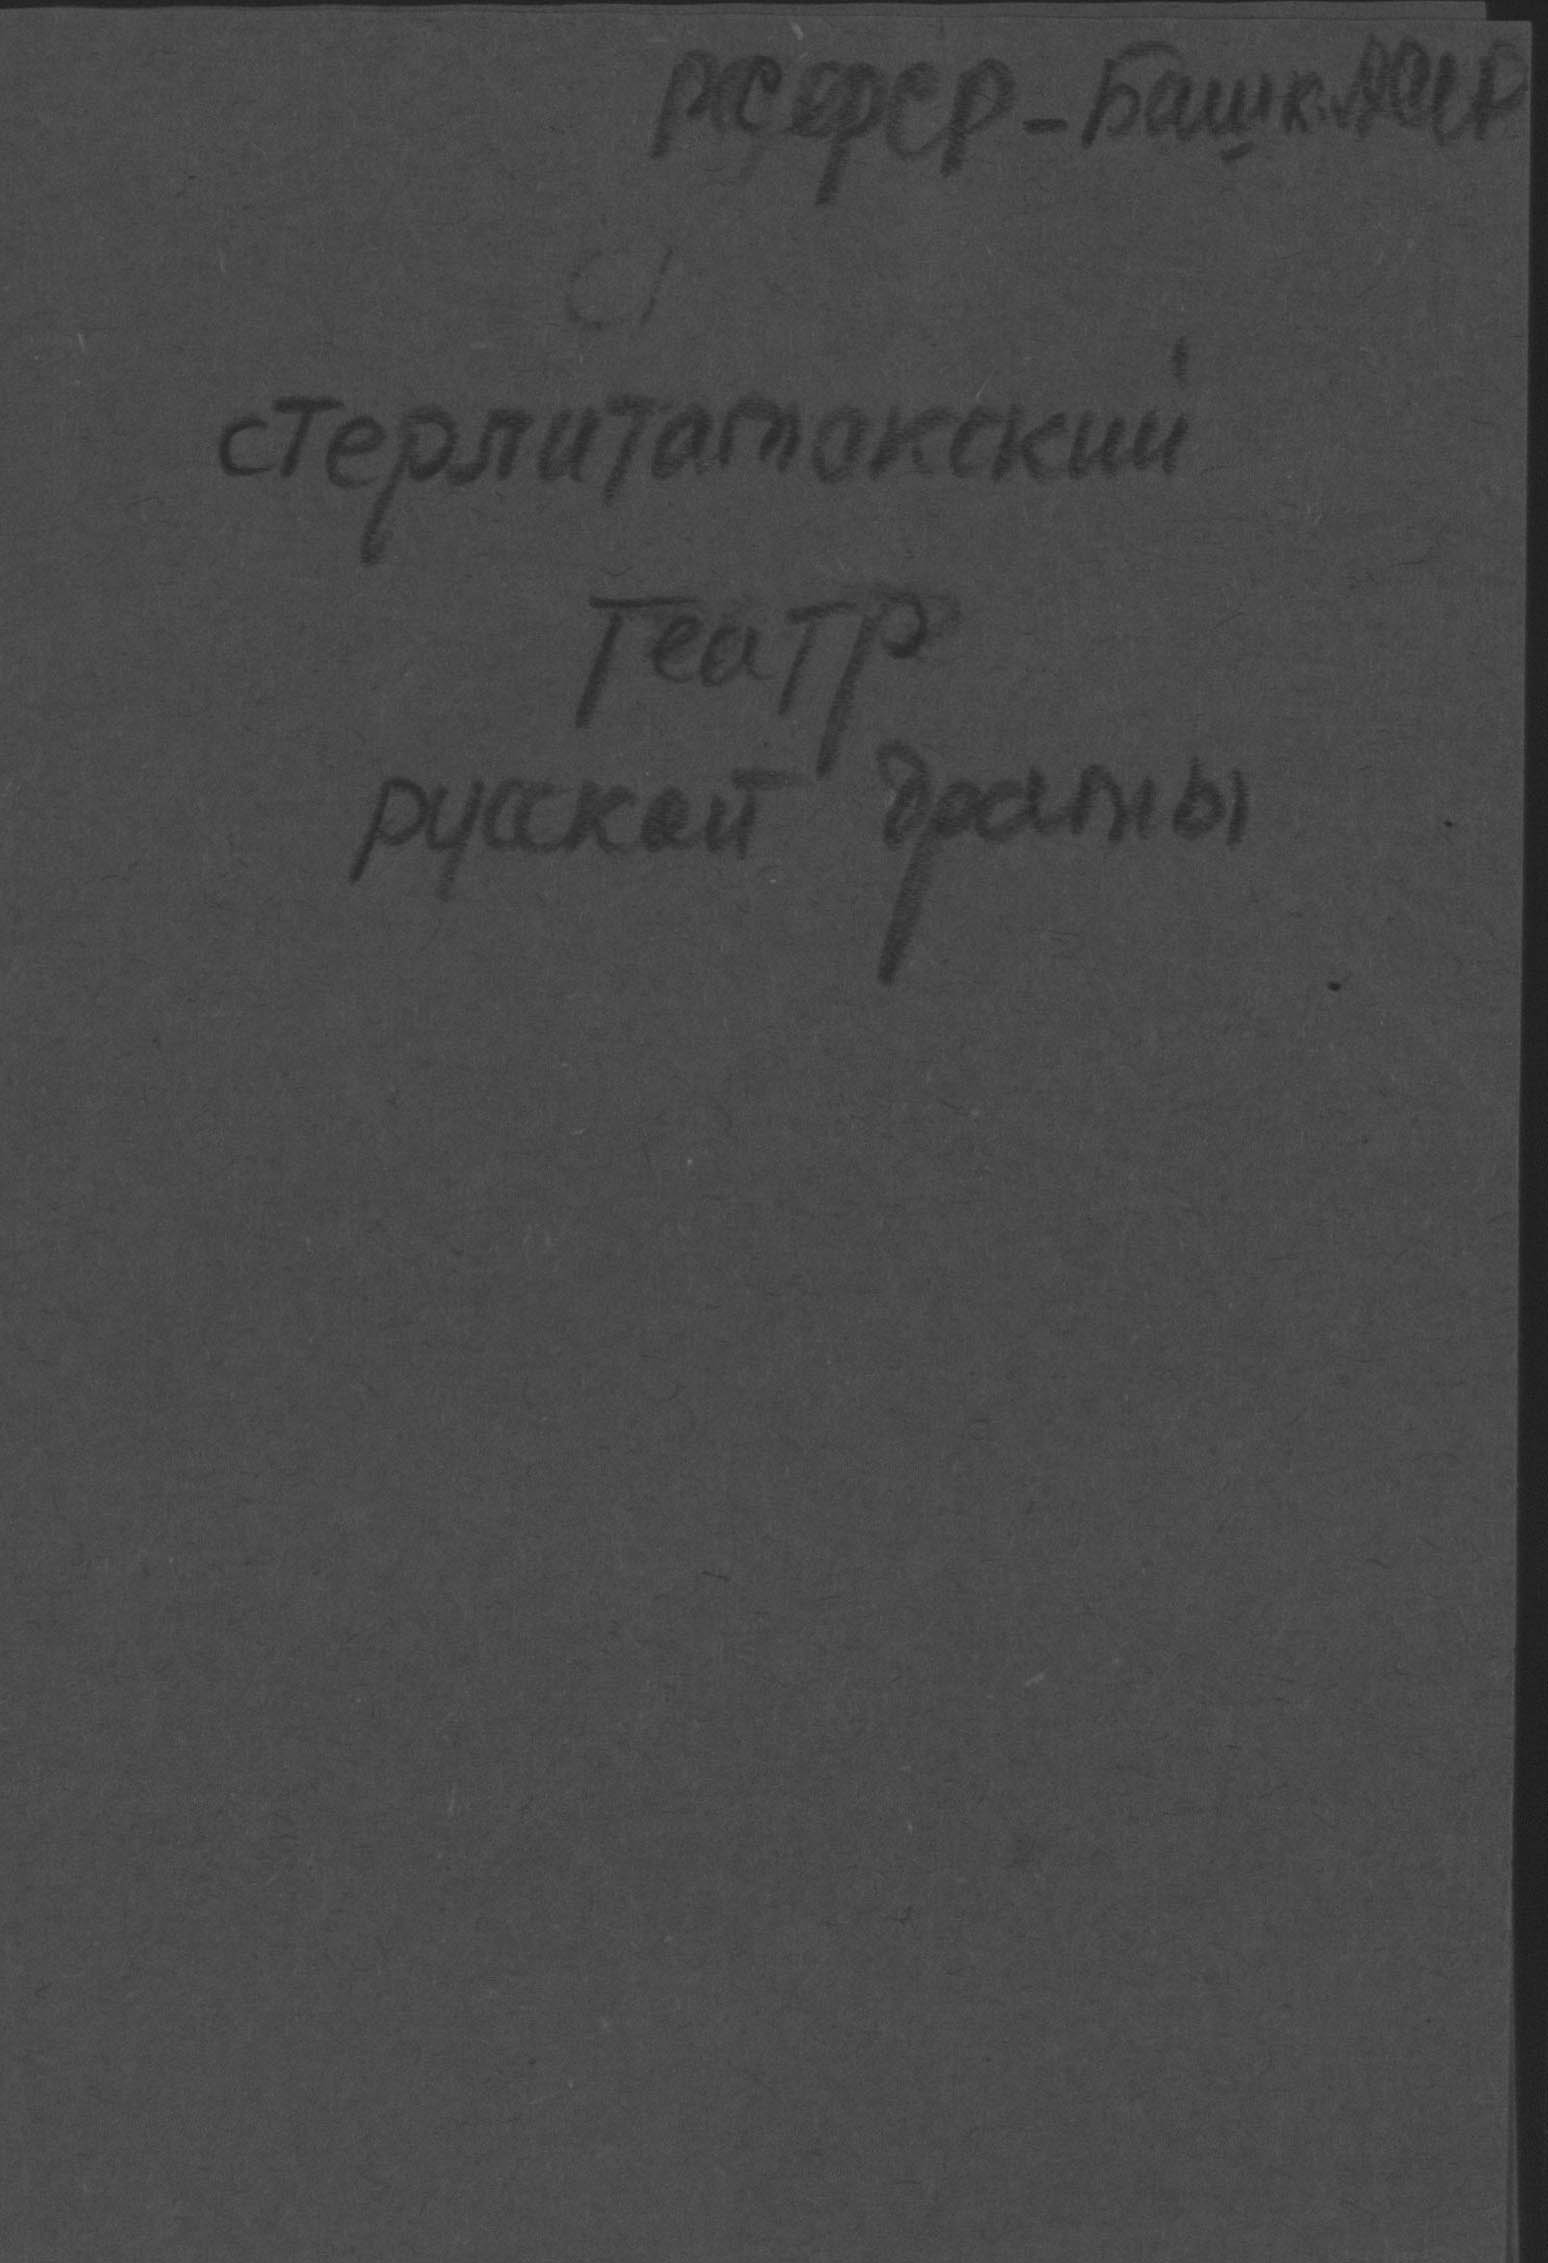 РСФСР - Башк. АССР
стерлитамакский
театр
русской драмы